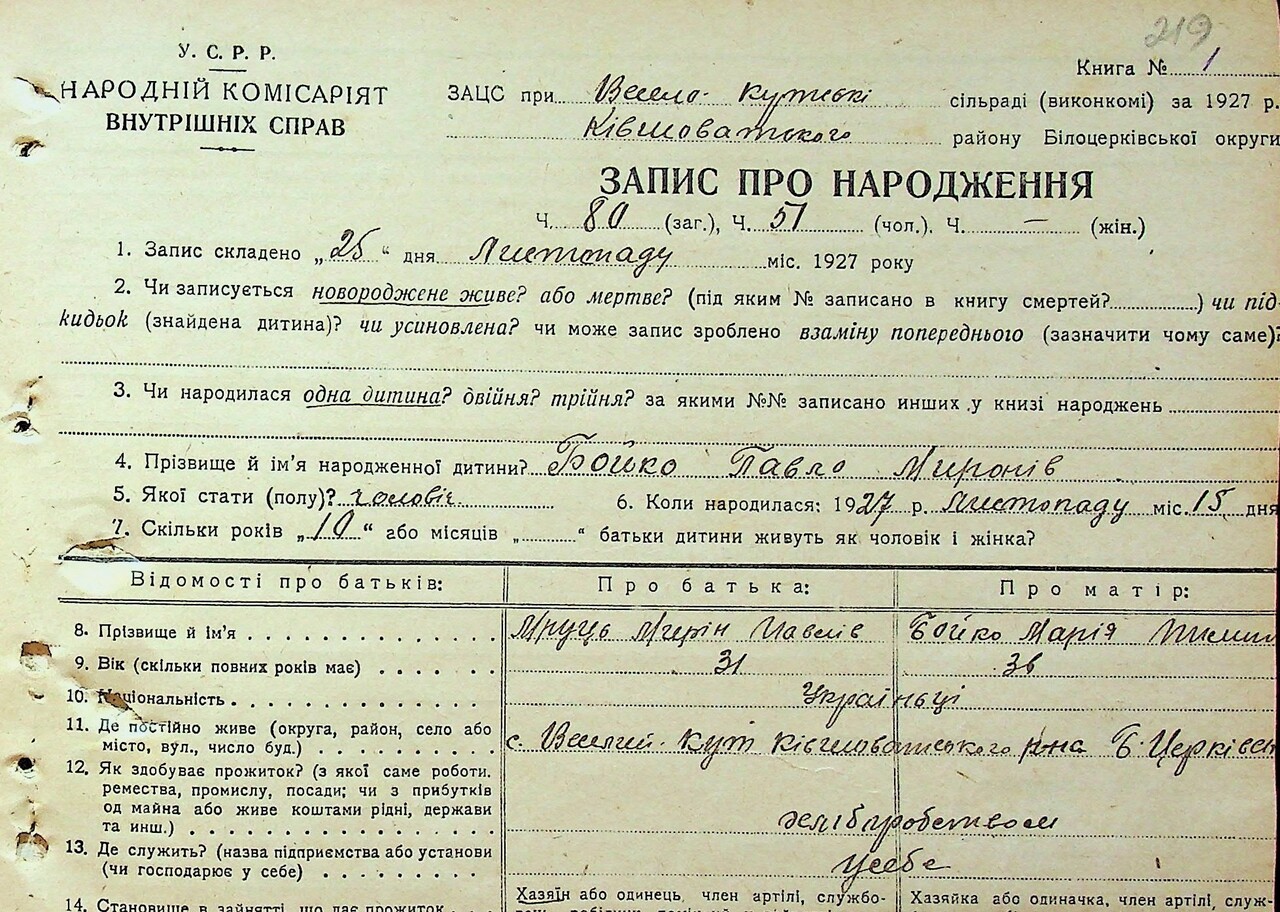 219
У. С. Р. Р.
НАРОДНІЙ КОМІСАРІЯТ
ВНУТРІШНІХ СПРАВ
Книга № 1
ЗАЦС при Весело-Кутській сільраді (виконкомі) за 1927 р.
Ківшоватського району Білоцерківської округи
ЗАПИС ПРО НАРОДЖЕННЯ
Ч. 80 (заг.), Ч. 51 (чол.). Ч. — (жін.)
1. Запис складено „25“ дня Листопаду міс. 1927 року
2. Чи записується новороджене живе? або мертве? (під яким № записано в книгу смертей?..........) чи під-
кидьок (знайдена дитина)? чи усиновлена? чи може запис зроблено взаміну попереднього (зазначити чому саме)?
3. Чи народилася одна дитина? двійня? трійня? за якими №№ записано инших у книзі народжень
4. Прізвище й ім'я народженної дитини? Бойко Павло Миронів
5. Якої стати (полу)? чоловіч. 6. Коли народилася: 1927 р. Листопаду міс. 15 дня
7. Скільки років „10“ або місяців „..........“ батьки дитини живуть як чоловік і жінка?
Відомості про батьків: Про батька: Про матір:
8. Прізвище й ім'я Мирін Павлів Бойко Марія
9. Вік (скільки повних років має) 31 36
10. Національность Україньці
11. Де постійно живе (округа, район, село або
місто, вул., число буд.) с. Веселий-Кут Ківшоватського р-на Б-Церківсь
12. Як здобуває прожиток? (з якої саме роботи.
ремества, промислу, посади; чи з прибутків
од майна або живе коштами рідні, держави
та инш.) хліборобством
13. Де служить? (назва підприємства або установи
(чи господарює у себе) усебе
14. Становище в зайнятті, що дає прожиток
Хазяїн або одинець, член артілі, службо-
Хазяйка або одиначка, член артілі, служ-